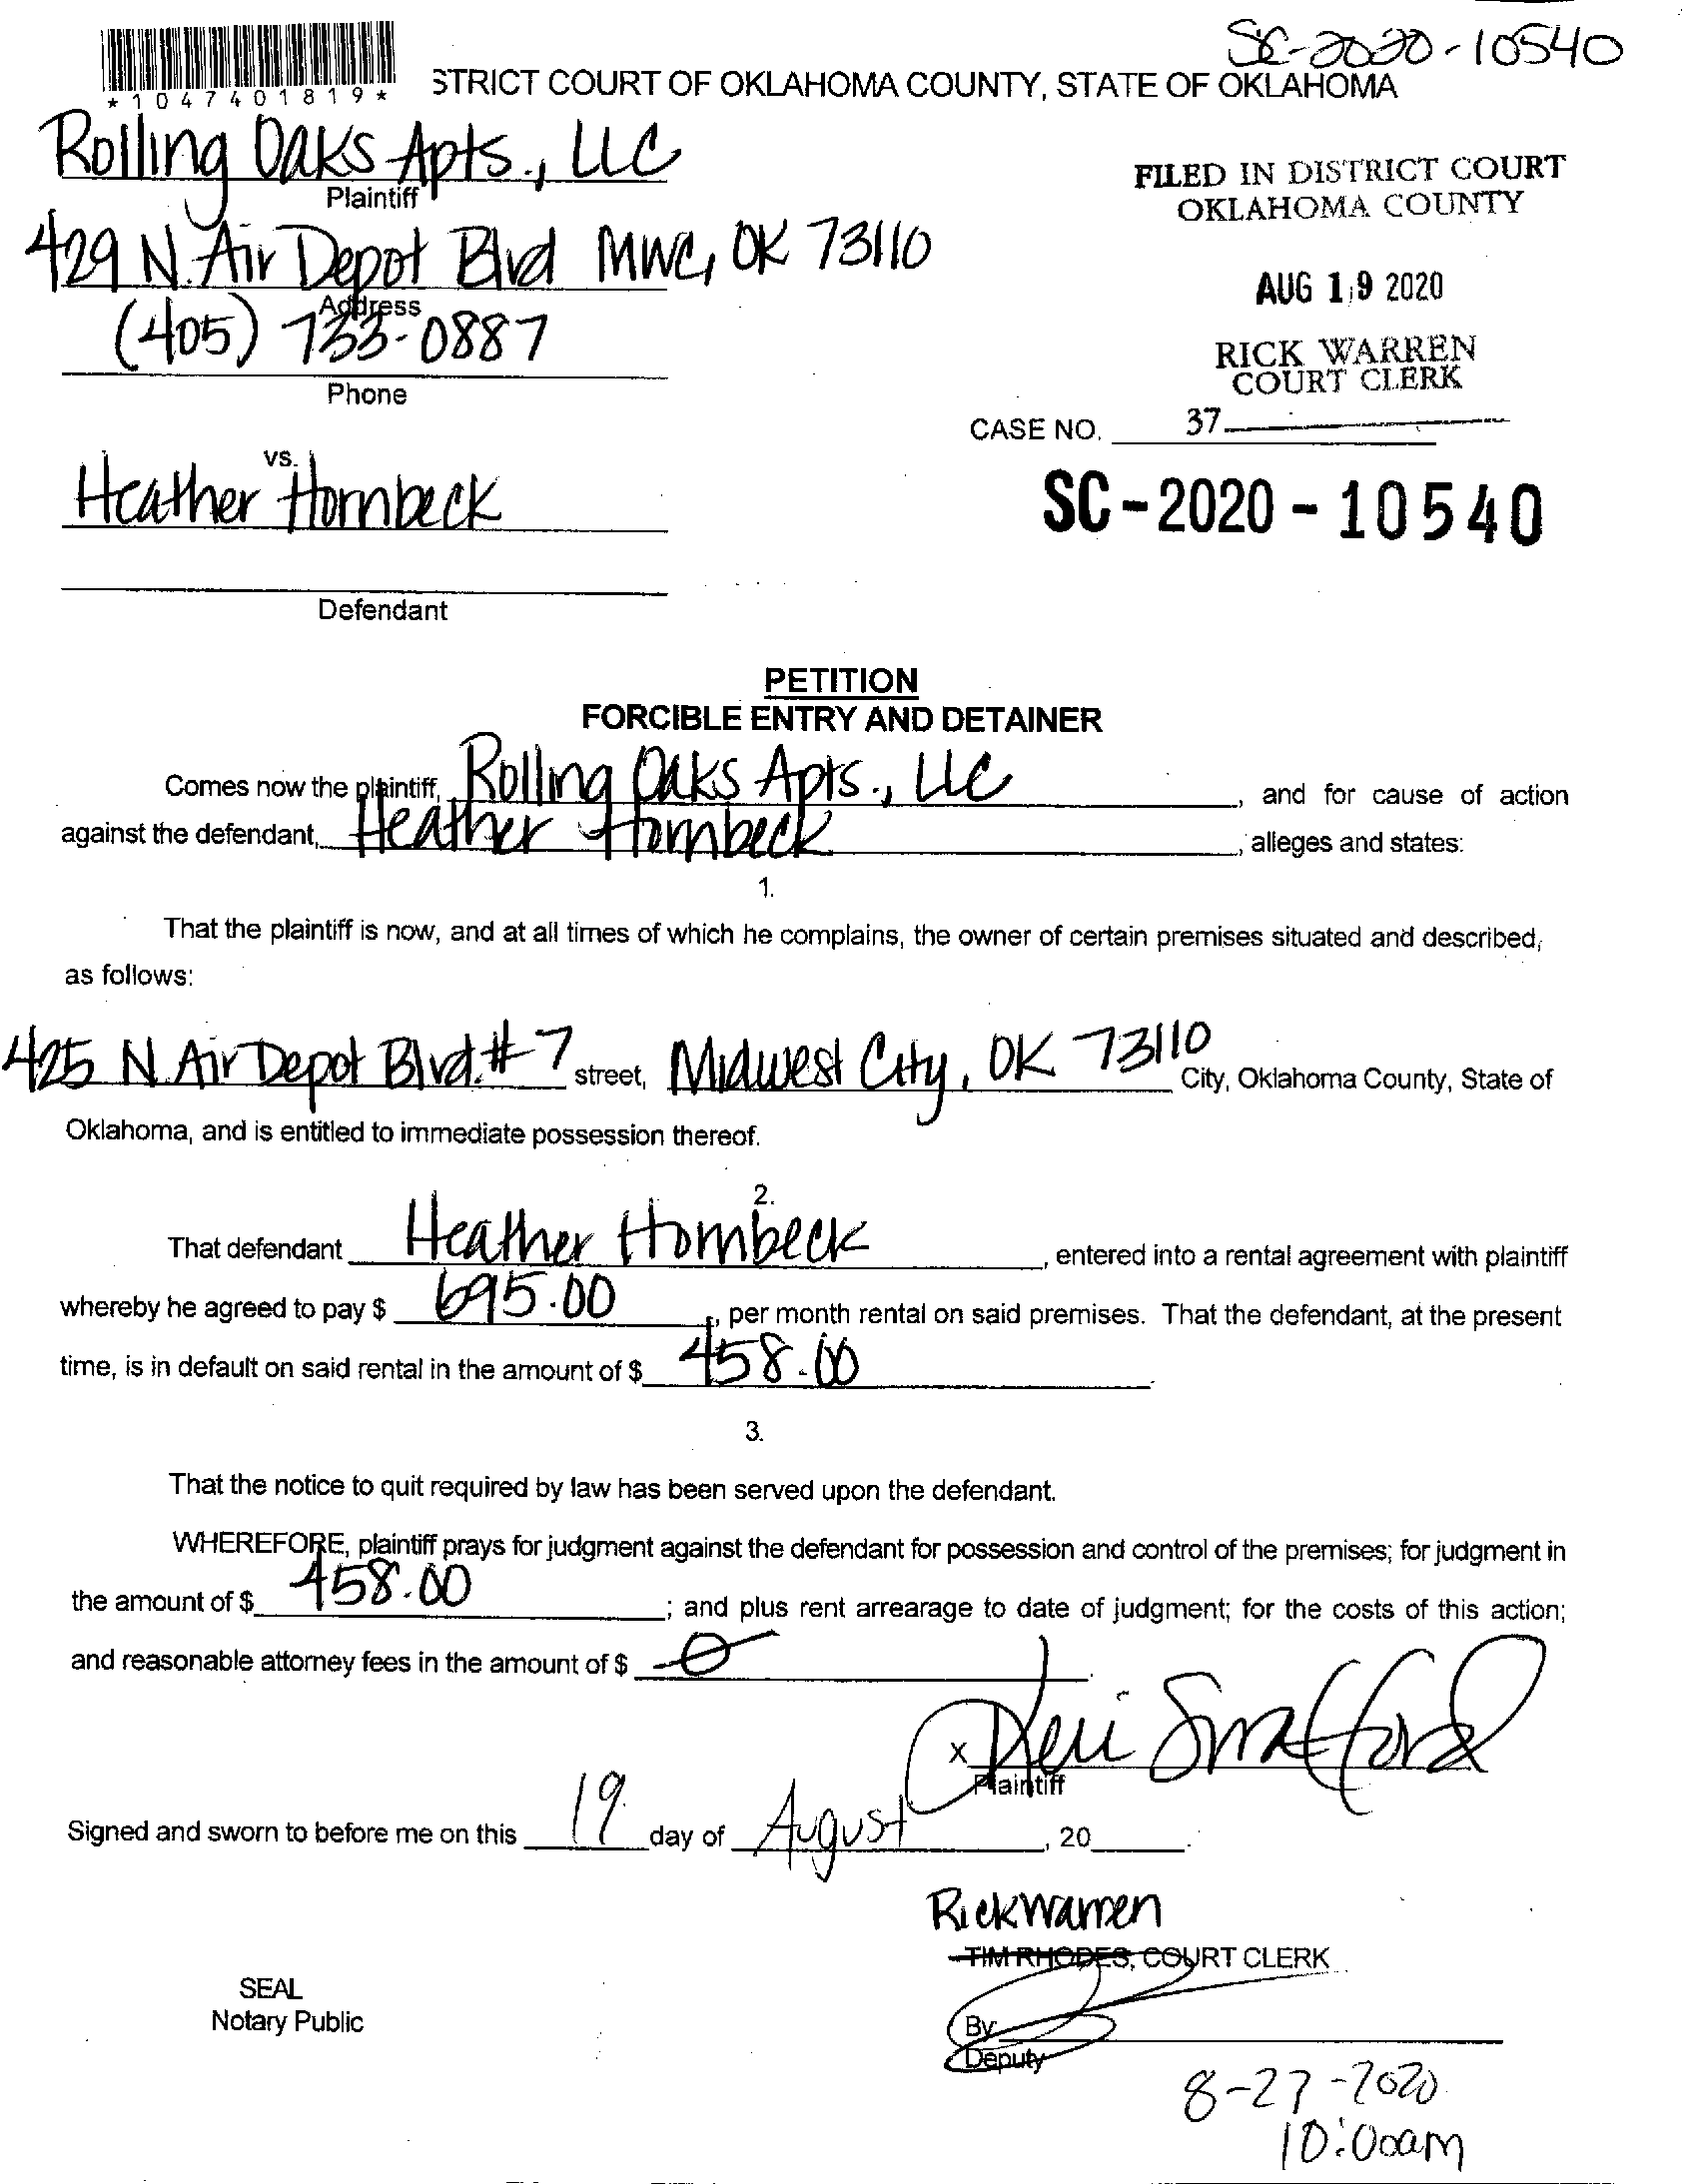 SC-2020-10540
*1047401819*
STRICT COURT OF OKLAHOMA COUNTY, STATE OF OKLAHOMA
Rolling Oaks Apts., LLC
Plaintiff
FILED IN DISTRICT COURT
OKLAHOMA COUNTY
429 N. Air Depot Blvd MWC, OK 73110
Address
AUG 19 2020
(405) 733-0887
Phone
RICK WARREN
COURT CLERK
CASE NO. 37
vs.
Heather Hornbeck
SC-2020-10540
Defendant
PETITION
FORCIBLE ENTRY AND DETAINER
Comes now the plaintiff, Rolling Oaks Apts., LLC, and for cause of action
against the defendant, Heather Hornbeck, alleges and states:
1.
That the plaintiff is now, and at all times of which he complains, the owner of certain premises situated and described,
as follows:
425 N. Air Depot Blvd. #7 street, Midwest City, OK 73110 City, Oklahoma County, State of
Oklahoma, and is entitled to immediate possession thereof.
2.
That defendant Heather Hornbeck, entered into a rental agreement with plaintiff
whereby he agreed to pay $ 695.00, per month rental on said premises. That the defendant, at the present
time, is in default on said rental in the amount of $ 458.00
3.
That the notice to quit required by law has been served upon the defendant.
WHEREFORE, plaintiff prays for judgment against the defendant for possession and control of the premises; for judgment in
the amount of $ 458.00; and plus rent arrearage to date of judgment; for the costs of this action;
and reasonable attorney fees in the amount of $ 0.
X Keri Smafford
Plaintiff
Signed and sworn to before me on this 19 day of August, 20 .
Rick Warren
TIM RHODES, COURT CLERK
SEAL
Notary Public
By
Deputy
8-27-2020
10:00am